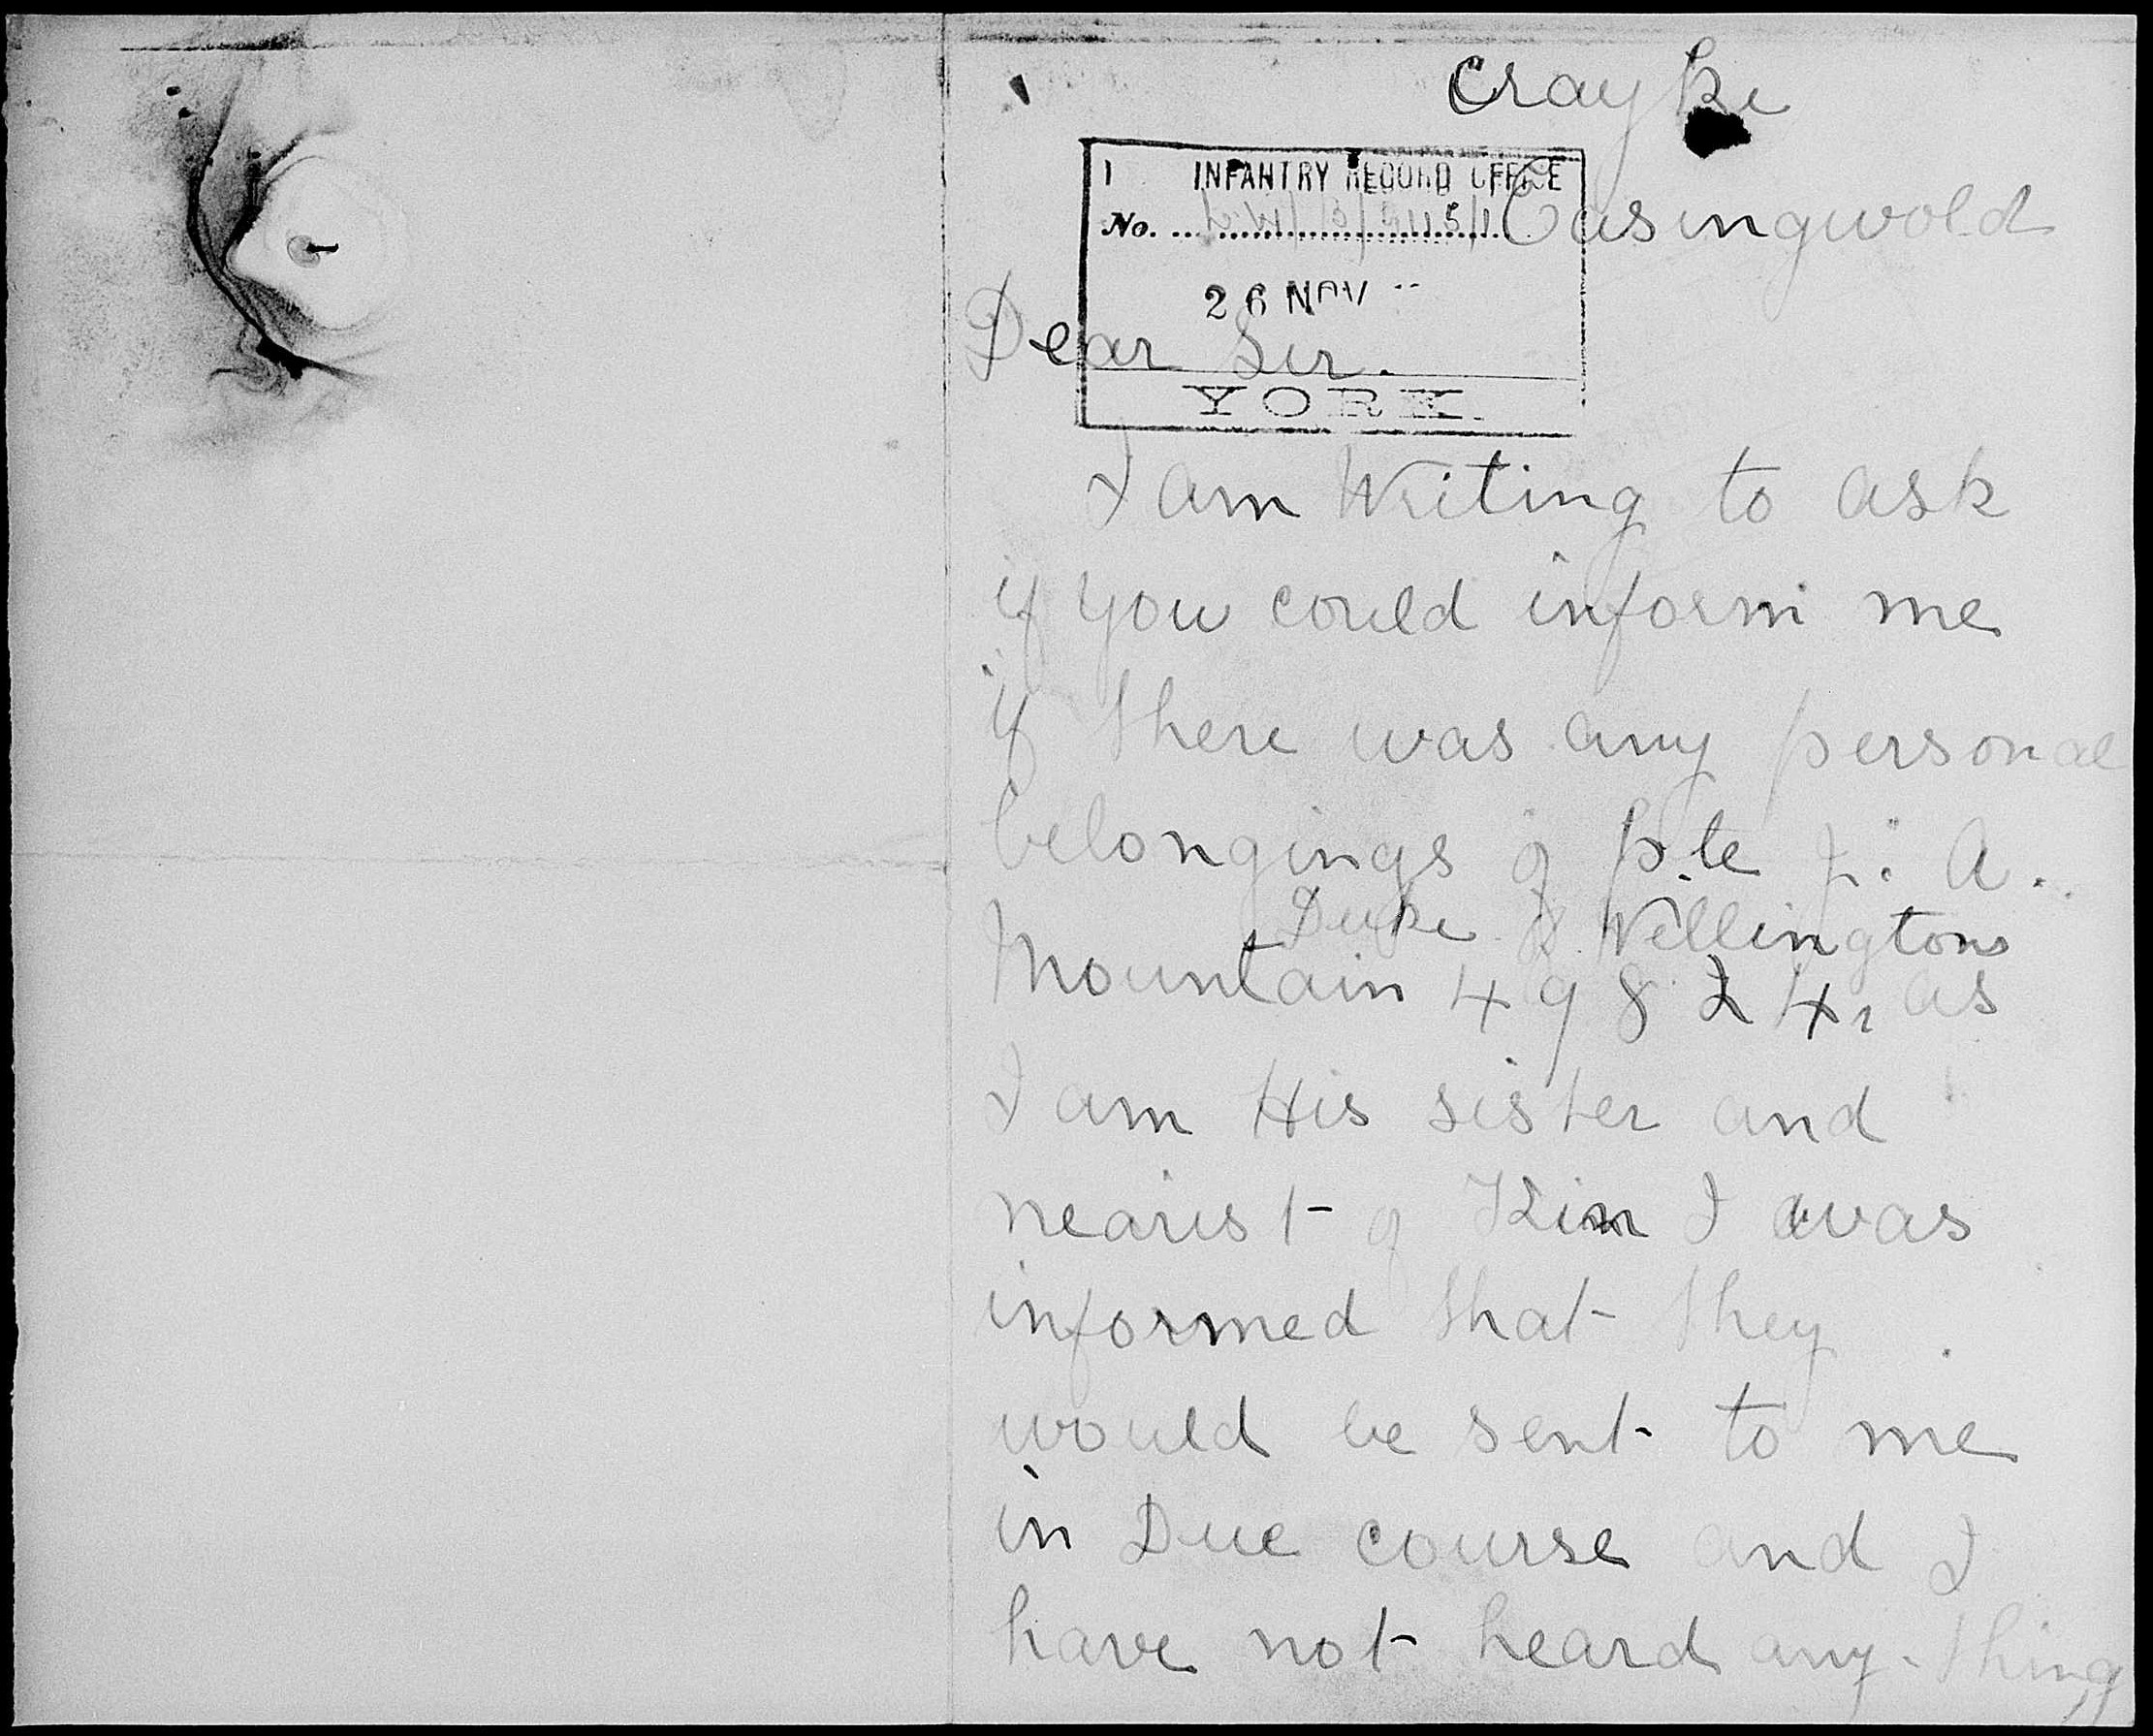 Crayke
INFANTRY RECORD OFFICE
No.
Easingwold
26 NOV
Dear Sir.
YORK.
I am Writing to ask
if you could inform me
if there was any personal
belongings of Pte J. A.
Duke of Wellingtons
Mountain 49824, as
I am His sister and
nearest of Kin I was
informed that they
would be sent to me
in Due course and I
have not heard any-thing